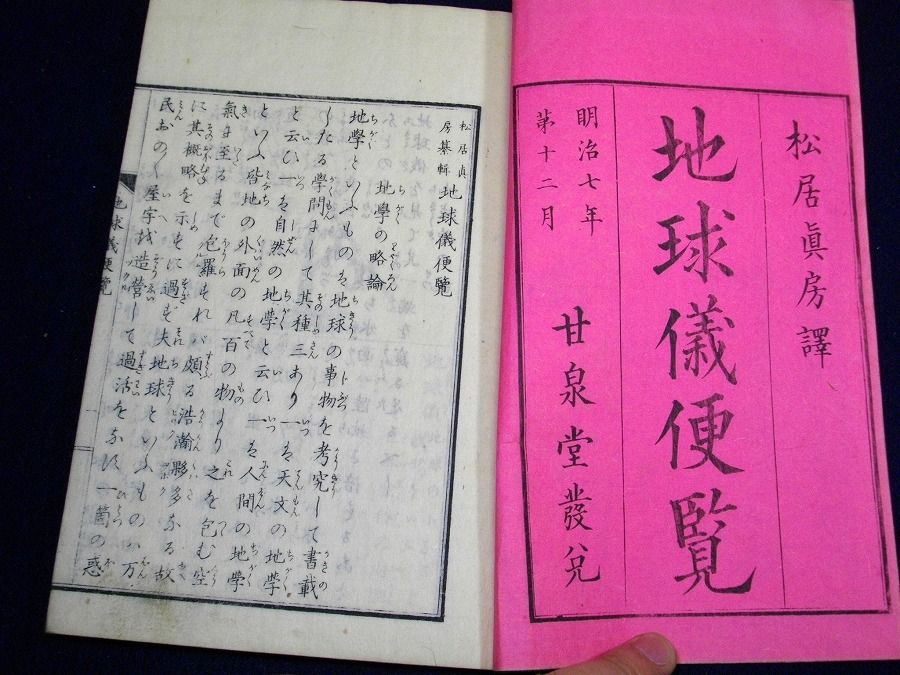 松居眞房譯
地球儀便覽
明治七年
第十二月
甘泉堂發兌
松居眞房纂輯 地球儀便覽
地學の略論
地學といふものは地球の事物を考究して書載
したる學問にして其種三あり一を天文の地學
と云ひ一を自然の地學と云ひ一を人間の地學
といふ皆地の外面の凡百の物より之を包む空
氣に至るまで包羅すれバ頗る浩瀚夥多なる故
に其概略を示すに過ぎず夫地球といふものハ万
民おの〳〵屋宇を造營して過活をなす一箇の惑
地球儀便覽